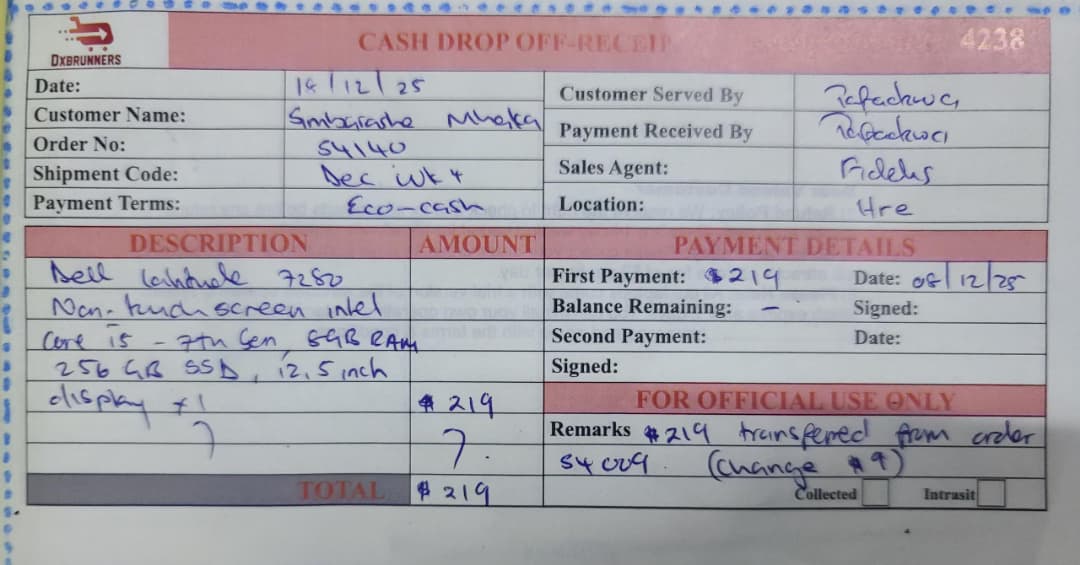 DXBRUNNERS
CASH DROP OFF-RECEIP
4238
Date: /12/25
Customer Name:
Order No: 54140
Shipment Code: Dec wk 4
Payment Terms: Eco-cash
Customer Served By
Payment Received By
Sales Agent: Fidelis
Location: Hre
DESCRIPTION AMOUNT
Dell Latitude 7280
Non-touch screen intel
Core i5 - 7th Gen, 8GB RAM
256 GB SSD, 12.5 inch
display x1 $219
TOTAL $219
PAYMENT DETAILS
First Payment: $219 Date: 08/12/25
Balance Remaining: - Signed:
Second Payment: Date:
Signed:
FOR OFFICIAL USE ONLY
Remarks $219 transferred from order
54009. (change $9)
Collected Intrasit